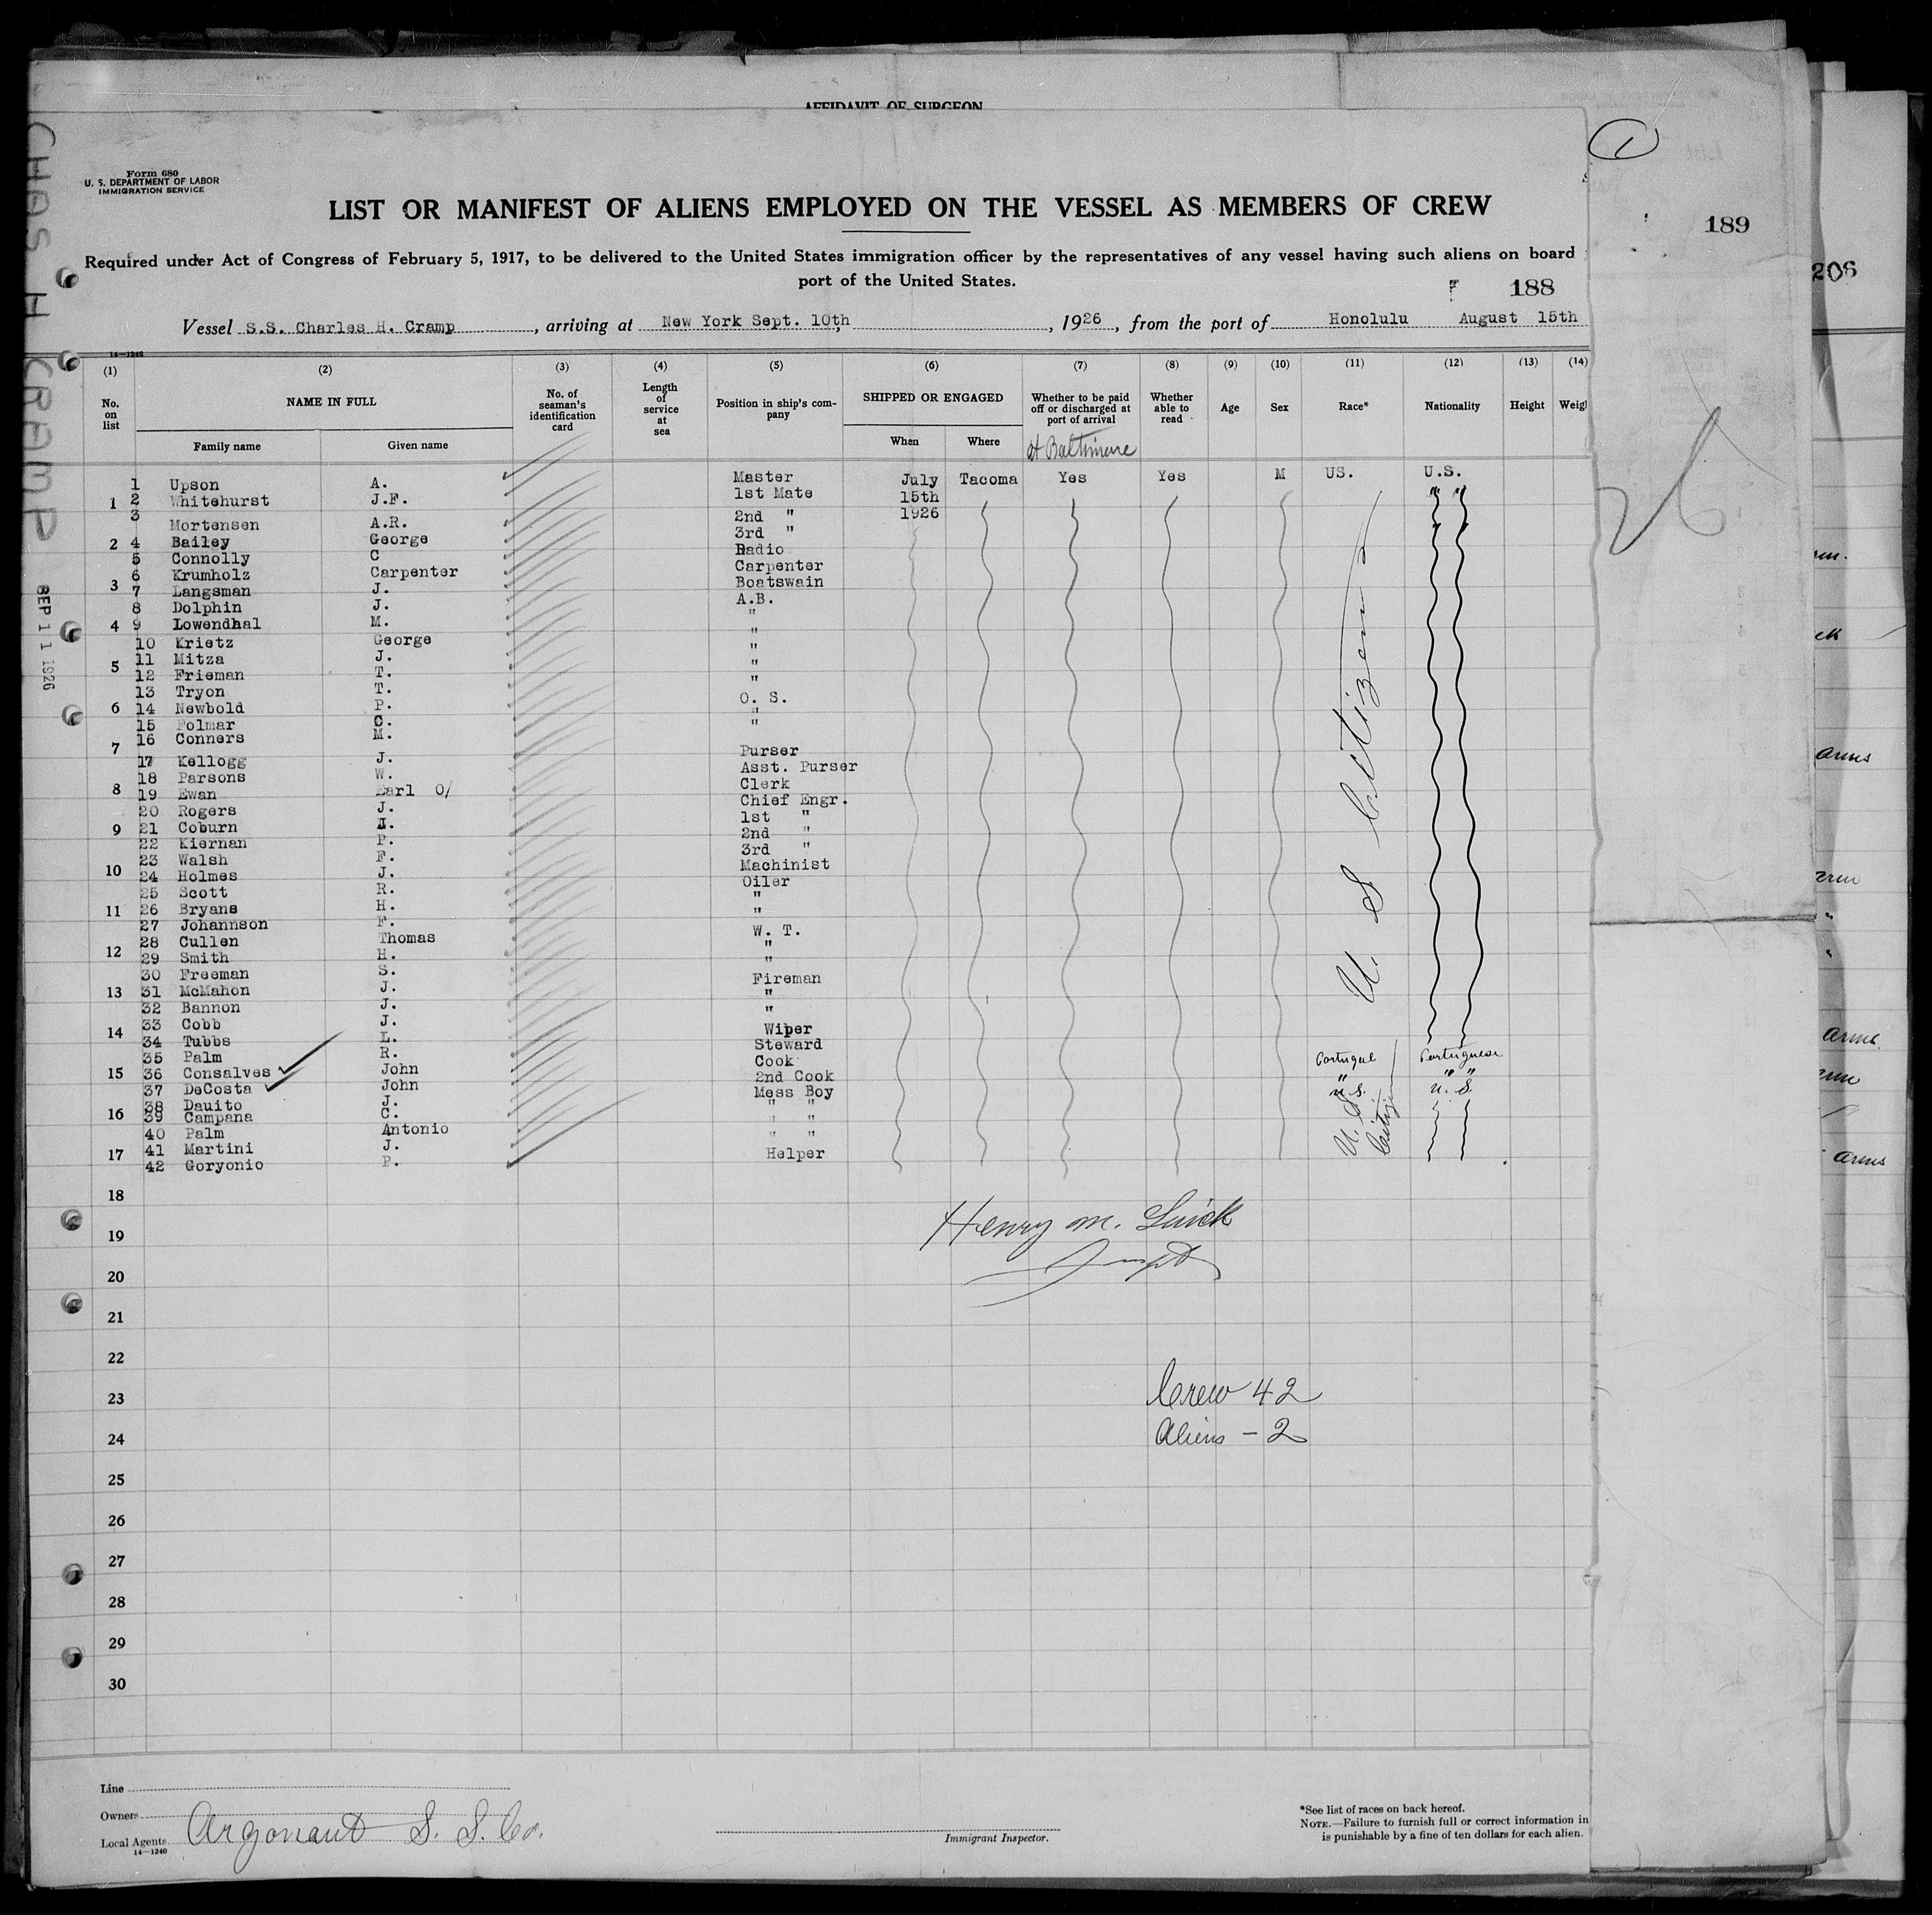 AFFIDAVIT OF SURGEON
1
Form 680
U. S. DEPARTMENT OF LABOR
IMMIGRATION SERVICE
LIST OR MANIFEST OF ALIENS EMPLOYED ON THE VESSEL AS MEMBERS OF CREW
189
Required under Act of Congress of February 5, 1917, to be delivered to the United States immigration officer by the representatives of any vessel having such aliens on board
port of the United States.
188
206
Vessel S.S. Charles H. Cramp, arriving at New York Sept. 10th, 1926, from the port of Honolulu August 15th
CHAS H CRAMP
SEP 11 1926
26
14—1240
(1) (2) (3) (4) (5) (6) (7) (8) (9) (10) (11) (12) (13) (14)
No. on list
NAME IN FULL
Family name Given name
No. of seaman's identification card
Length of service at sea
Position in ship's company
SHIPPED OR ENGAGED
When Where
Whether to be paid off or discharged at port of arrival
At Baltimore
Whether able to read
Age Sex Race* Nationality Height Weigh
1 Upson A. Master July Tacoma Yes Yes M US. U.S.
1 2 Whitehurst J.F. 1st Mate 15th " "
3 Mortensen A.R. 2nd " 1926
2 4 Bailey George 3rd " " "
5 Connolly C Radio
6 Krumholz Carpenter Carpenter
3 7 Langsman J. Boatswain
8 Dolphin J. A.B.
4 9 Lowendhal M. "
10 Krietz George "
5 11 Mitza J. "
12 Frieman T. "
13 Tryon T. "
6 14 Newbold P. O. S.
15 Folmar C. "
16 Conners M. "
7 17 Kellogg J. Purser
18 Parsons W. Asst. Purser
8 19 Ewan Earl O/ Clerk
20 Rogers J. Chief Engr.
9 21 Coburn I. 1st "
22 Kiernan P. 2nd "
23 Walsh F. 3rd "
10 24 Holmes J. Machinist
25 Scott R. Oiler
11 26 Bryans H. "
27 Johannson F. "
28 Cullen Thomas W. T.
12 29 Smith H. "
30 Freeman S. "
13 31 McMahon J. Fireman
32 Bannon J. "
33 Cobb J. "
14 34 Tubbs L. Wiper
35 Palm R. Steward
15 36 Consalves John Cook Portugal Portuguese
37 DeCosta John 2nd Cook " " "
38 Dauito J. Mess Boy U.S. U. S.
16 39 Campana C. " "
40 Palm Antonio " "
41 Martini J. " "
17 42 Goryonio P. Helper
U. S. Citizens
U. S. Citizen
18
19
Henry M.
Inspt
20
21
22
23
Crew 42
24
Aliens – 2
25
26
27
28
29
30
Line
Owners
Local Agents Argonaut S. S. Co.
14—1240
Immigrant Inspector.
*See list of races on back hereof.
NOTE.—Failure to furnish full or correct information in
is punishable by a fine of ten dollars for each alien.
arms
arms
arms